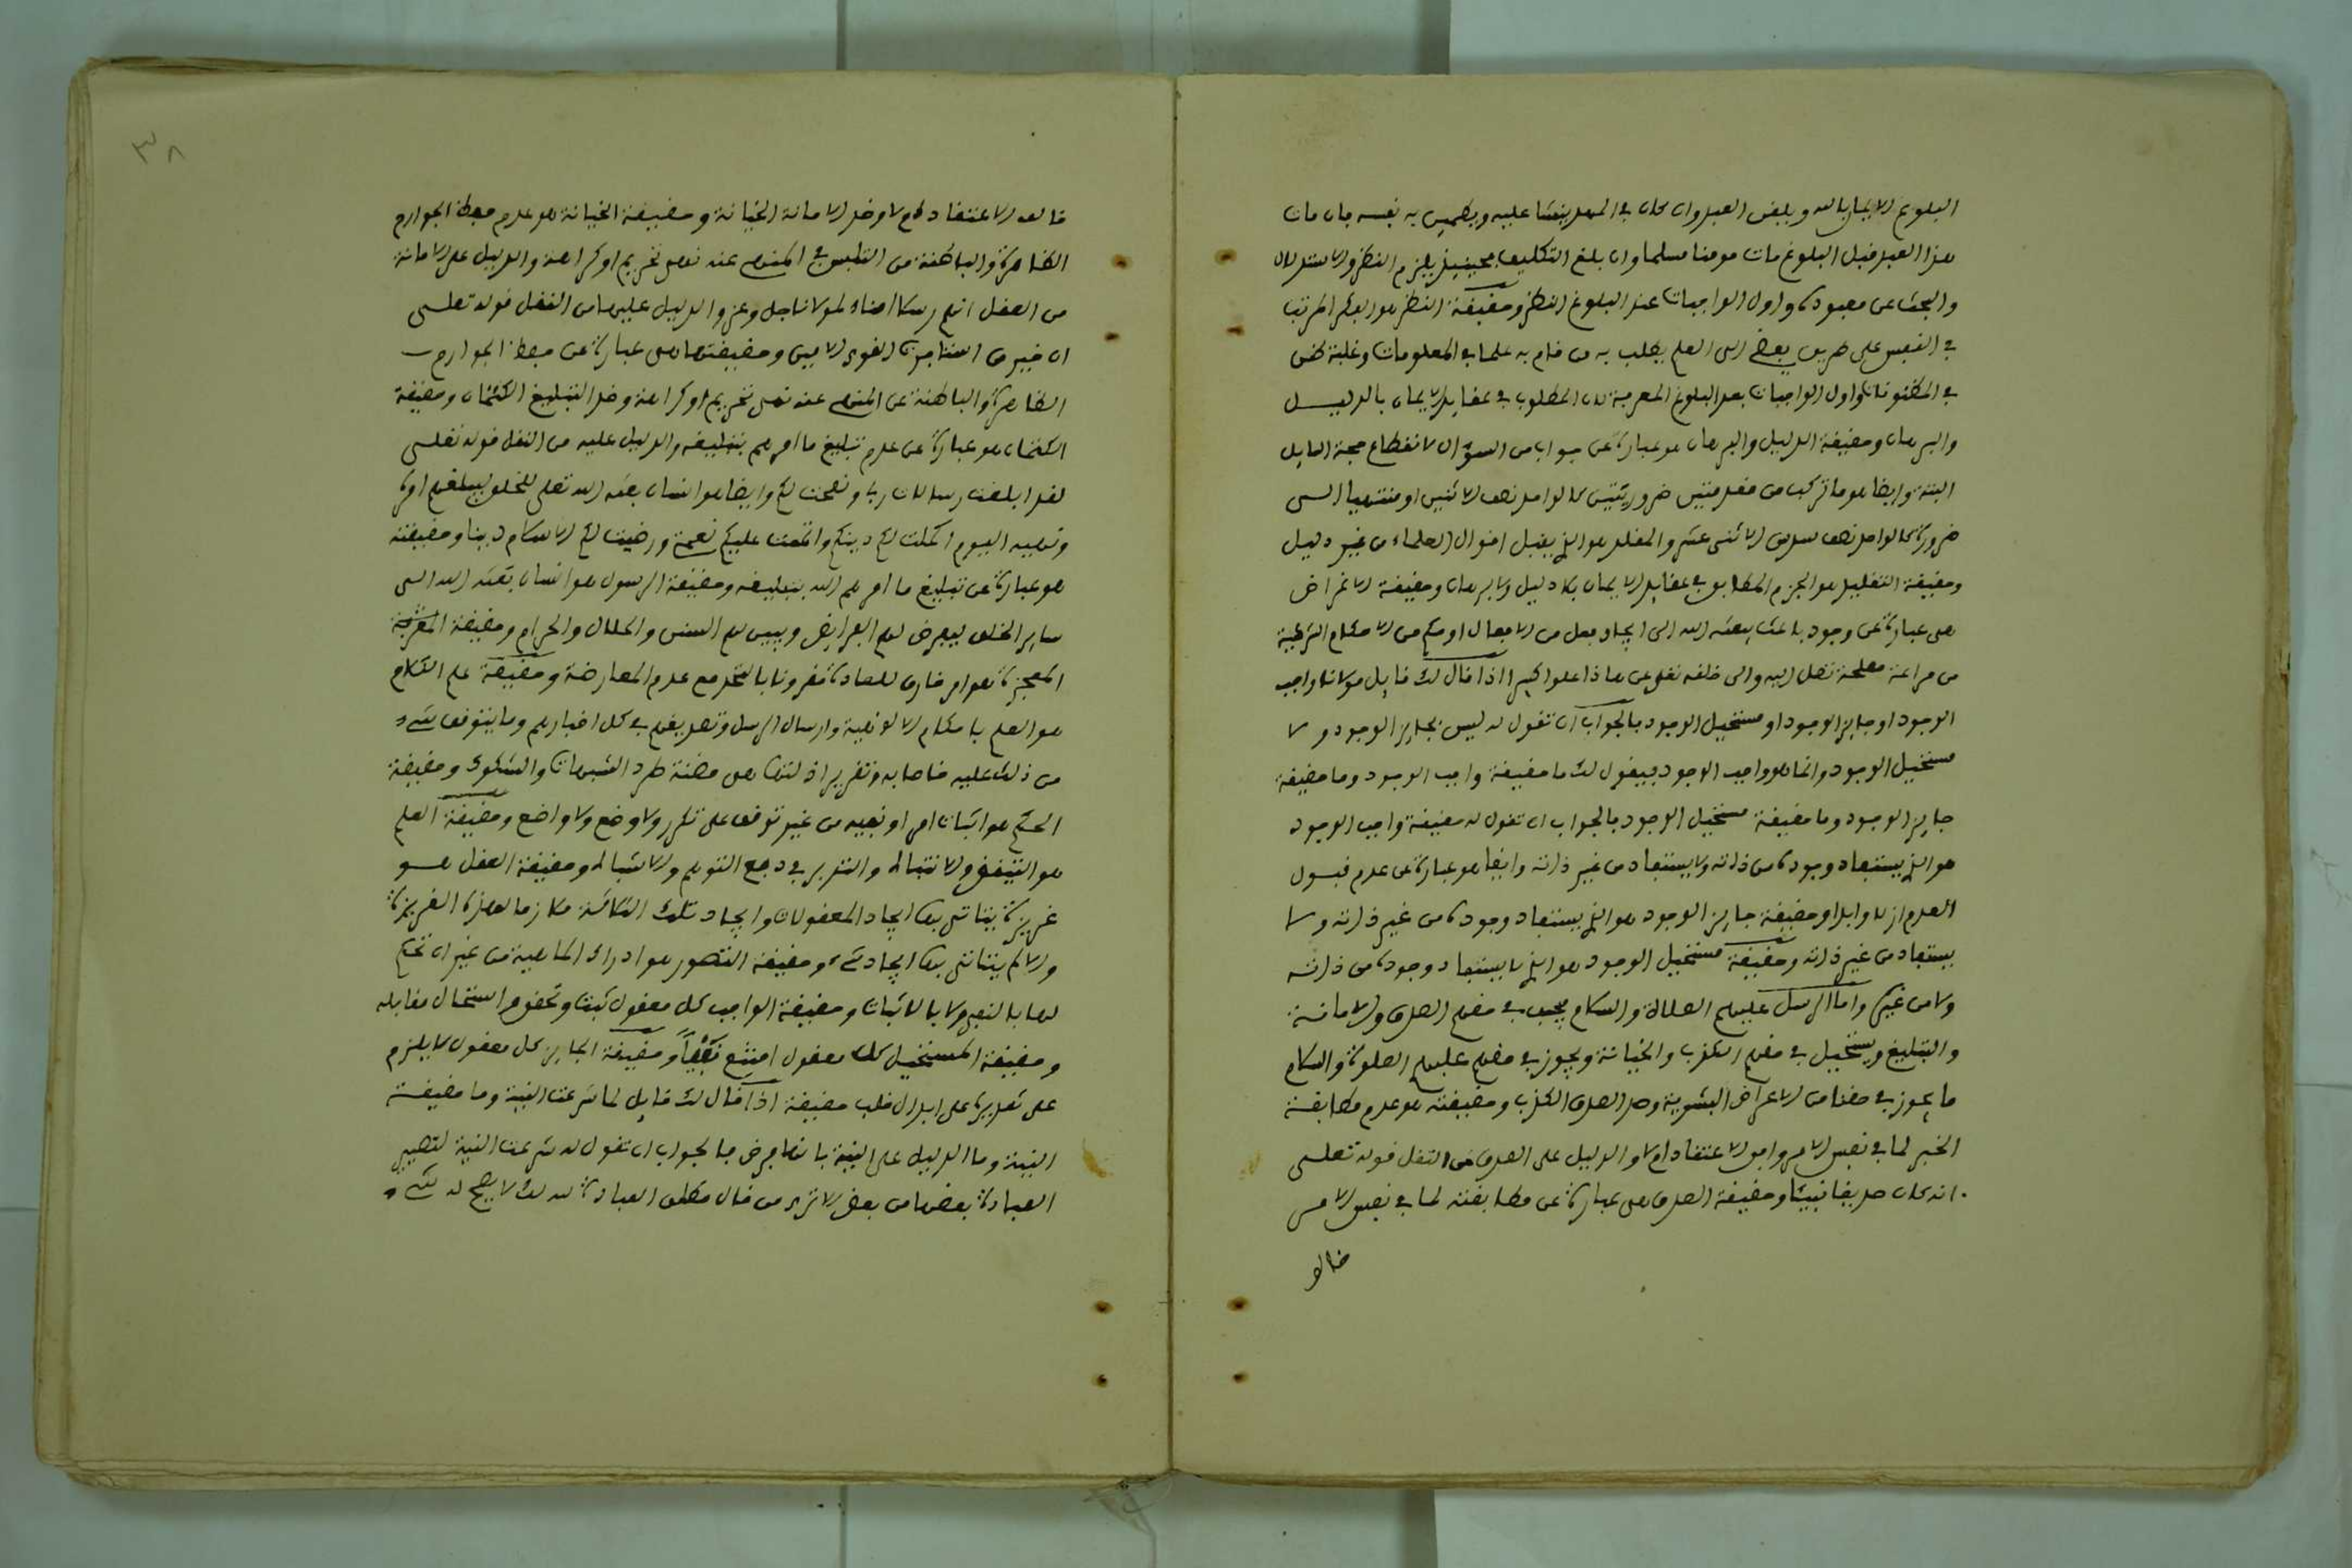 البلوغ الايمان بالله ويلقن العبد وان كان في المهد ينشا عليه ويطمين به نفسه فان مات
هذا العبد قبل البلوغ مات مومنا مسلما وان بلغ التكليف فحينيذ يلزم النظر والاستدلال
والبحث عن معبوده واول الواجبات عند البلوغ النظر وحقيقة النظر هو الفكر المرتب
في النفس على طريق يفضي الى العلم يطلب به من قام به علما في المعلومات وغلبة ظن
في المظنونات واول الواجبات بعد البلوغ المعرفة لان المطلوب في عقايد الايمان بالدليل
والبرهان وحقيقة الدليل والبرهان هو عبارة عن جواب من السؤال لانقطاع حجة السايل
البتة وايضا هو ما تركب من مقدمتين ضروريتين كالواحد نصف الاثنين او منتهيا الى
ضرورة كالواحد نصف سدس الاثني عشر والمقلد هو الذي يقبل اقوال العلماء من غير دليل
وحقيقة التقليد هو الجزم المطابق في عقايد الايمان بلا دليل ولا برهان وحقيقة الاغراض
هي عبارة عن وجود باعث يبعثه الله الى ايجاد فعل من الافعال او حكم من الاحكام الشرعية
من مراعة مصلحة تصل اليه والى خلقه تعلى عن هاذا علوا كبيرا اذا قال لك قايل مولانا واجب
الوجود او جايز الوجود او مستحيل الوجود فالجواب ان تقول له ليس بجايز الوجود ولا
مستحيل الوجود وانما هو واجب الوجود فيقول لك ما حقيقة واجب الوجود وما حقيقة
جايز الوجود وما حقيقة مستحيل الوجود فالجواب ان تقول له حقيقة واجب الوجود
هو الذي يستفاد وجوده من ذاته ولا يستفاد من غير ذاته وايضا هو عبارة عن عدم قبول
العدم ازلا وابدا وحقيقة جايز الوجود هو الذي يستفاد وجوده من غير ذاته ولا
يستفاد من غير ذاته وحقيقة مستحيل الوجود هو الذي لا يستفاد وجوده من ذاته
ولا من غيره واما الرسل عليهم الصلاة والسلام فيجب في حقهم الصدق والامانة
والتبليغ ويستحيل في حقهم الكذب والخيانة ويجوز في حقهم عليهم الصلوة والسلام
ما يجوز في حقنا من الاعراض البشرية وضد الصدق الكذب وحقيقته هو عدم مطابقة
الخبر لما في نفس الامر وافق الاعتقاد ام لا والدليل على الصدق من النقل قوله تعلى
انه كان صديقا نبيئا وحقيقة الصدق هي عبارة عن مطابقته لما في نفس الامر
خالف
٣٨
خالف الاعتقاد ام لا وضد الامانة الخيانة وحقيقة الخيانة هو عدم حفظ الجوارح
الظاهرة والباطنة من التلبس في المنهي عنه نهي تحريم او كراهة والدليل على الامانة
من العقل انهم رسلا امناء لمولانا جل وعز والدليل عليها من النقل قوله تعلى
ان خير من استاجرت القوي الامين وحقيقتها هي عبارة عن حفظ الجوارح
الظاهرة والباطنة عن المنهي عنه نهي تحريم او كراهة وضد التبليغ الكتمان وحقيقة
الكتمان هو عبارة عن عدم تبليغ ما امرهم بتبليغه والدليل عليه من النقل قوله تعلى
لقد ابلغت رسالات ربي ونصحت لكم وايضا هو انسان بعثه الله تعلى للخلق ليبلغهم
وقوله اليوم اكملت لكم دينكم واتممت عليكم نعمتي ورضيت لكم الاسلام دينا وحقيقته
هو عبارة عن تبليغ ما امرهم الله بتبليغه وحقيقة الرسول هو انسان بعثه الله الى
ساير الخلق ليفرض لهم الفرايض ويبين لهم السنن والحلال والحرام وحقيقة
المعجزة هو امر خارق للعادة مقرونا بالتحدي مع عدم المعارضة وحقيقة علم الكلام
هو العلم باحكام الالوهية وارسال الرسل وتصديقهم في كل اخبارهم وما يتوقف شيء
من ذلك عليه خاصا به وتقرير ادلتها هي مظنة طرد الشبهات والشكوك وحقيقة
الحكم هو اثبات امر او نفيه من غير توقف على تكرر ولا وضع ولا واضع وحقيقة العلم
هو التيقظ والانتباه والتدبر في دفع التوهم والاشباه وحقيقة العقل هو
غريزة يتاتى بها ايجاد المعقولات وايجاد تلك ملازما لهذه الغريزة
والا لم يتاتى بها ايجاد شيء وحقيقة التصور هو ادراك الماهية من غير ان تحكم
لها بالنفي ولا بالاثبات وحقيقة الواجب كل معقول ثبت وتحقق استحال مقابله
وحقيقة المستحيل كل معقول امتنع وحقيقة الجايز كل معقول لا يلزم
على تقديره على ابدال قلب حقيقة اذا قال لك قايل لما شرعت النية وما حقيقة
النية وما الدليل على النية بانها فرض فالجواب ان تقول له شرعت النية لتمييز
العبادة بعضها من بعض الا ترى من قال مطلق العبادة لله لك لا يصح له شيء